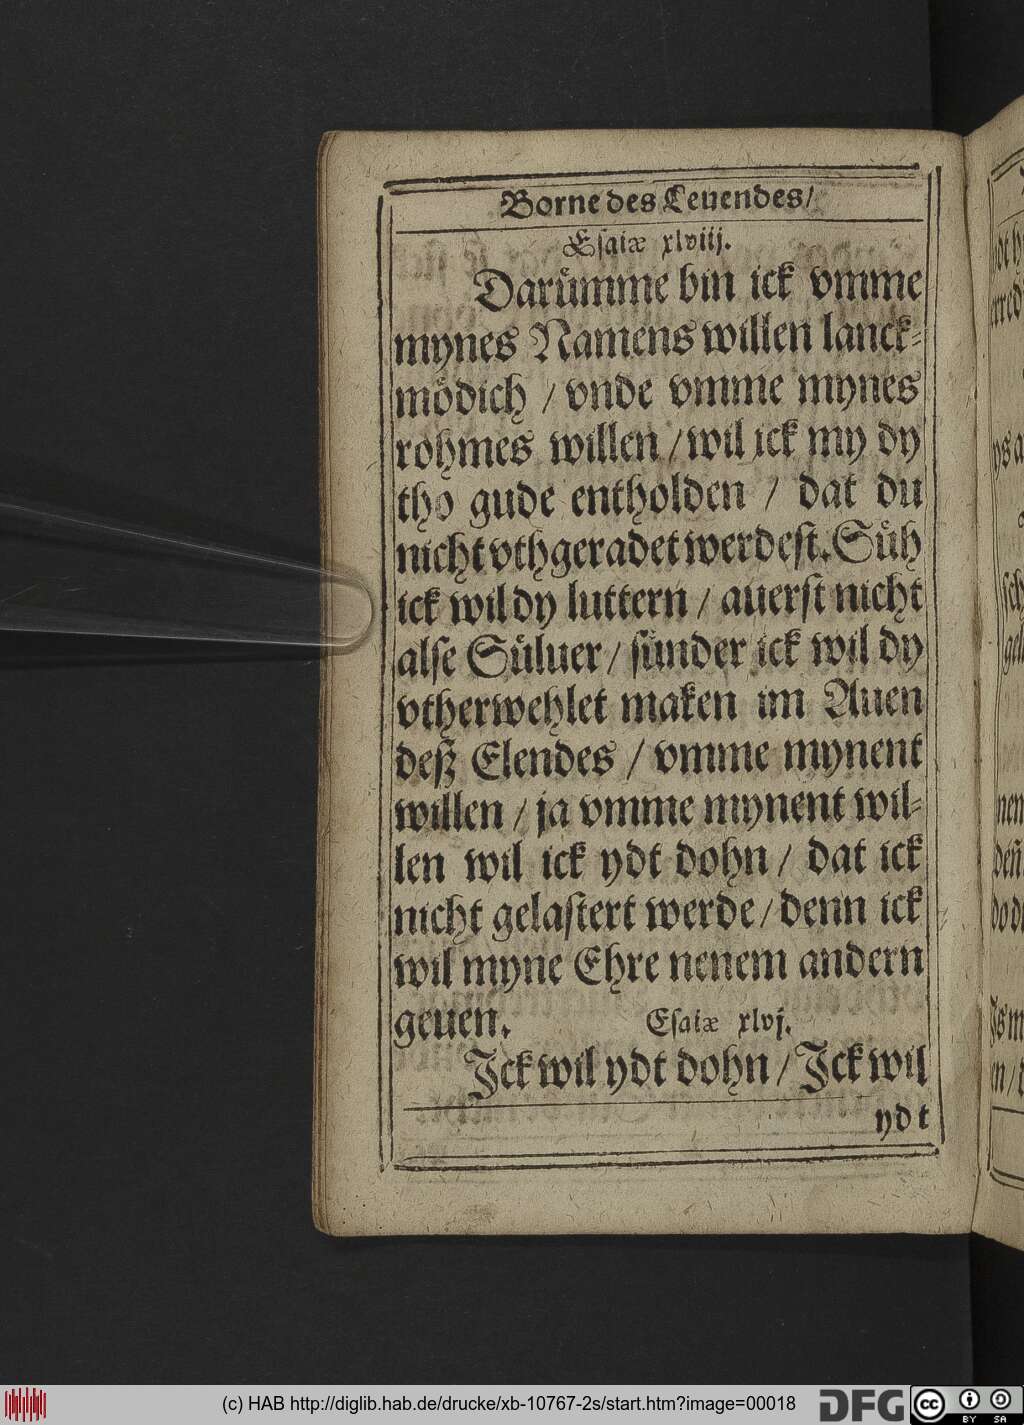 Borne des Leuendes/
Esaiæ xlviij.
Darümme bin ick vmme
mynes Namens willen lanck-
mödich / vnde vmme mynes
rohmes willen / wil ick my dy
tho gude entholden / dat du
nicht vthgeradet werdest. Süh
ick wil dy luttern / auerst nicht
alse Süluer / sünder ick wil dy
vtherwehlet maken im Auen
deß Elendes / vmme mynent
willen / ja vmme mynent wil-
len wil ick ydt dohn / dat ick
nicht gelastert werde / denn ick
wil myne Ehre nenem andern
geuen. Esaiæ xlvj.
Jck wil ydt dohn / Jck wil
ydt
(c) HAB http://diglib.hab.de/drucke/xb-10767-2s/start.htm?image=00018
DFG
cc BY SA